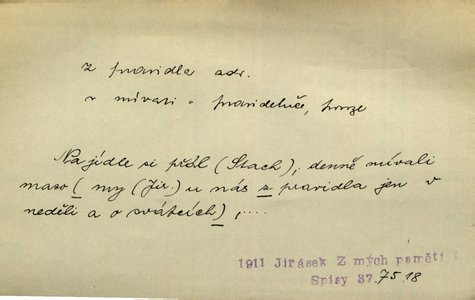 z pravidla adv.
v mívati = pravidelně, pouze
Na jídle si přál (Stach), denně mívali
maso (my (Jir.) u nás z pravidla jen v
neděli a o svátcích), ....
1911 Jirásek Z mých pamětí
Spisy 37. 75 18